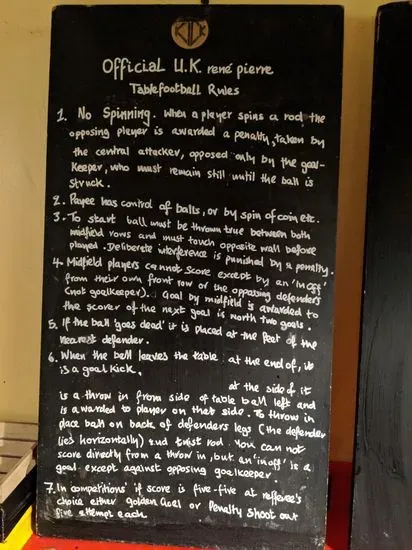 KICK
Official U.K. rené pierre
Tablefootball Rules
1. No Spinning. When a player spins a rod, the
opposing player is awarded a penalty, taken by
the central attacker, opposed only by the goal-
keeper, who must remain still until the ball is
struck.
2. Payee has control of balls, or by spin of coin etc.
3. To start ball must be thrown true between both
midfield rows and must touch opposite wall before
played. Deliberate interference is punished by a penalty.
4. Midfield players cannot score except by an 'in off'
from their own front row or the opposing defenders
(not goalkeeper). Goal by midfield is awarded to
the scorer of the next goal is worth two goals.
5. If the ball 'goes dead' it is placed at the feet of the
nearest defender.
6. When the ball leaves the table at the end of, it
is a goal kick,
at the side of it
is a throw in from side of table ball left and
is awarded to player on that side. To throw in
place ball on back of defenders legs (the defender
lies horizontally) and twist rod. You can not
score directly from a throw in, but an 'in off' is a
goal except against opposing goalkeeper.
7. In competitions if score is five-five at refferee's
choice either golden Goal or Penalty shoot out
five attempt each